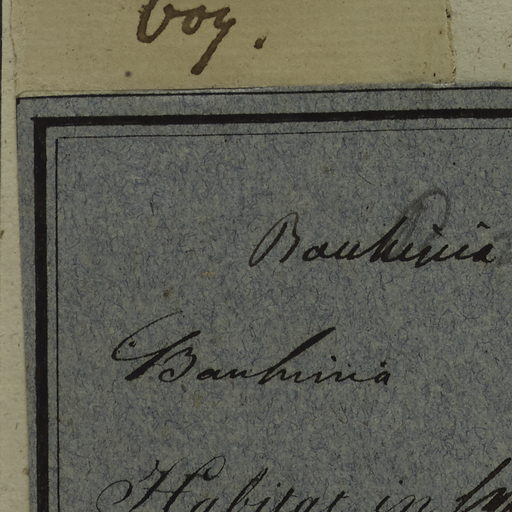 boy.
Bauhinia
Bauhinia
Habitat in